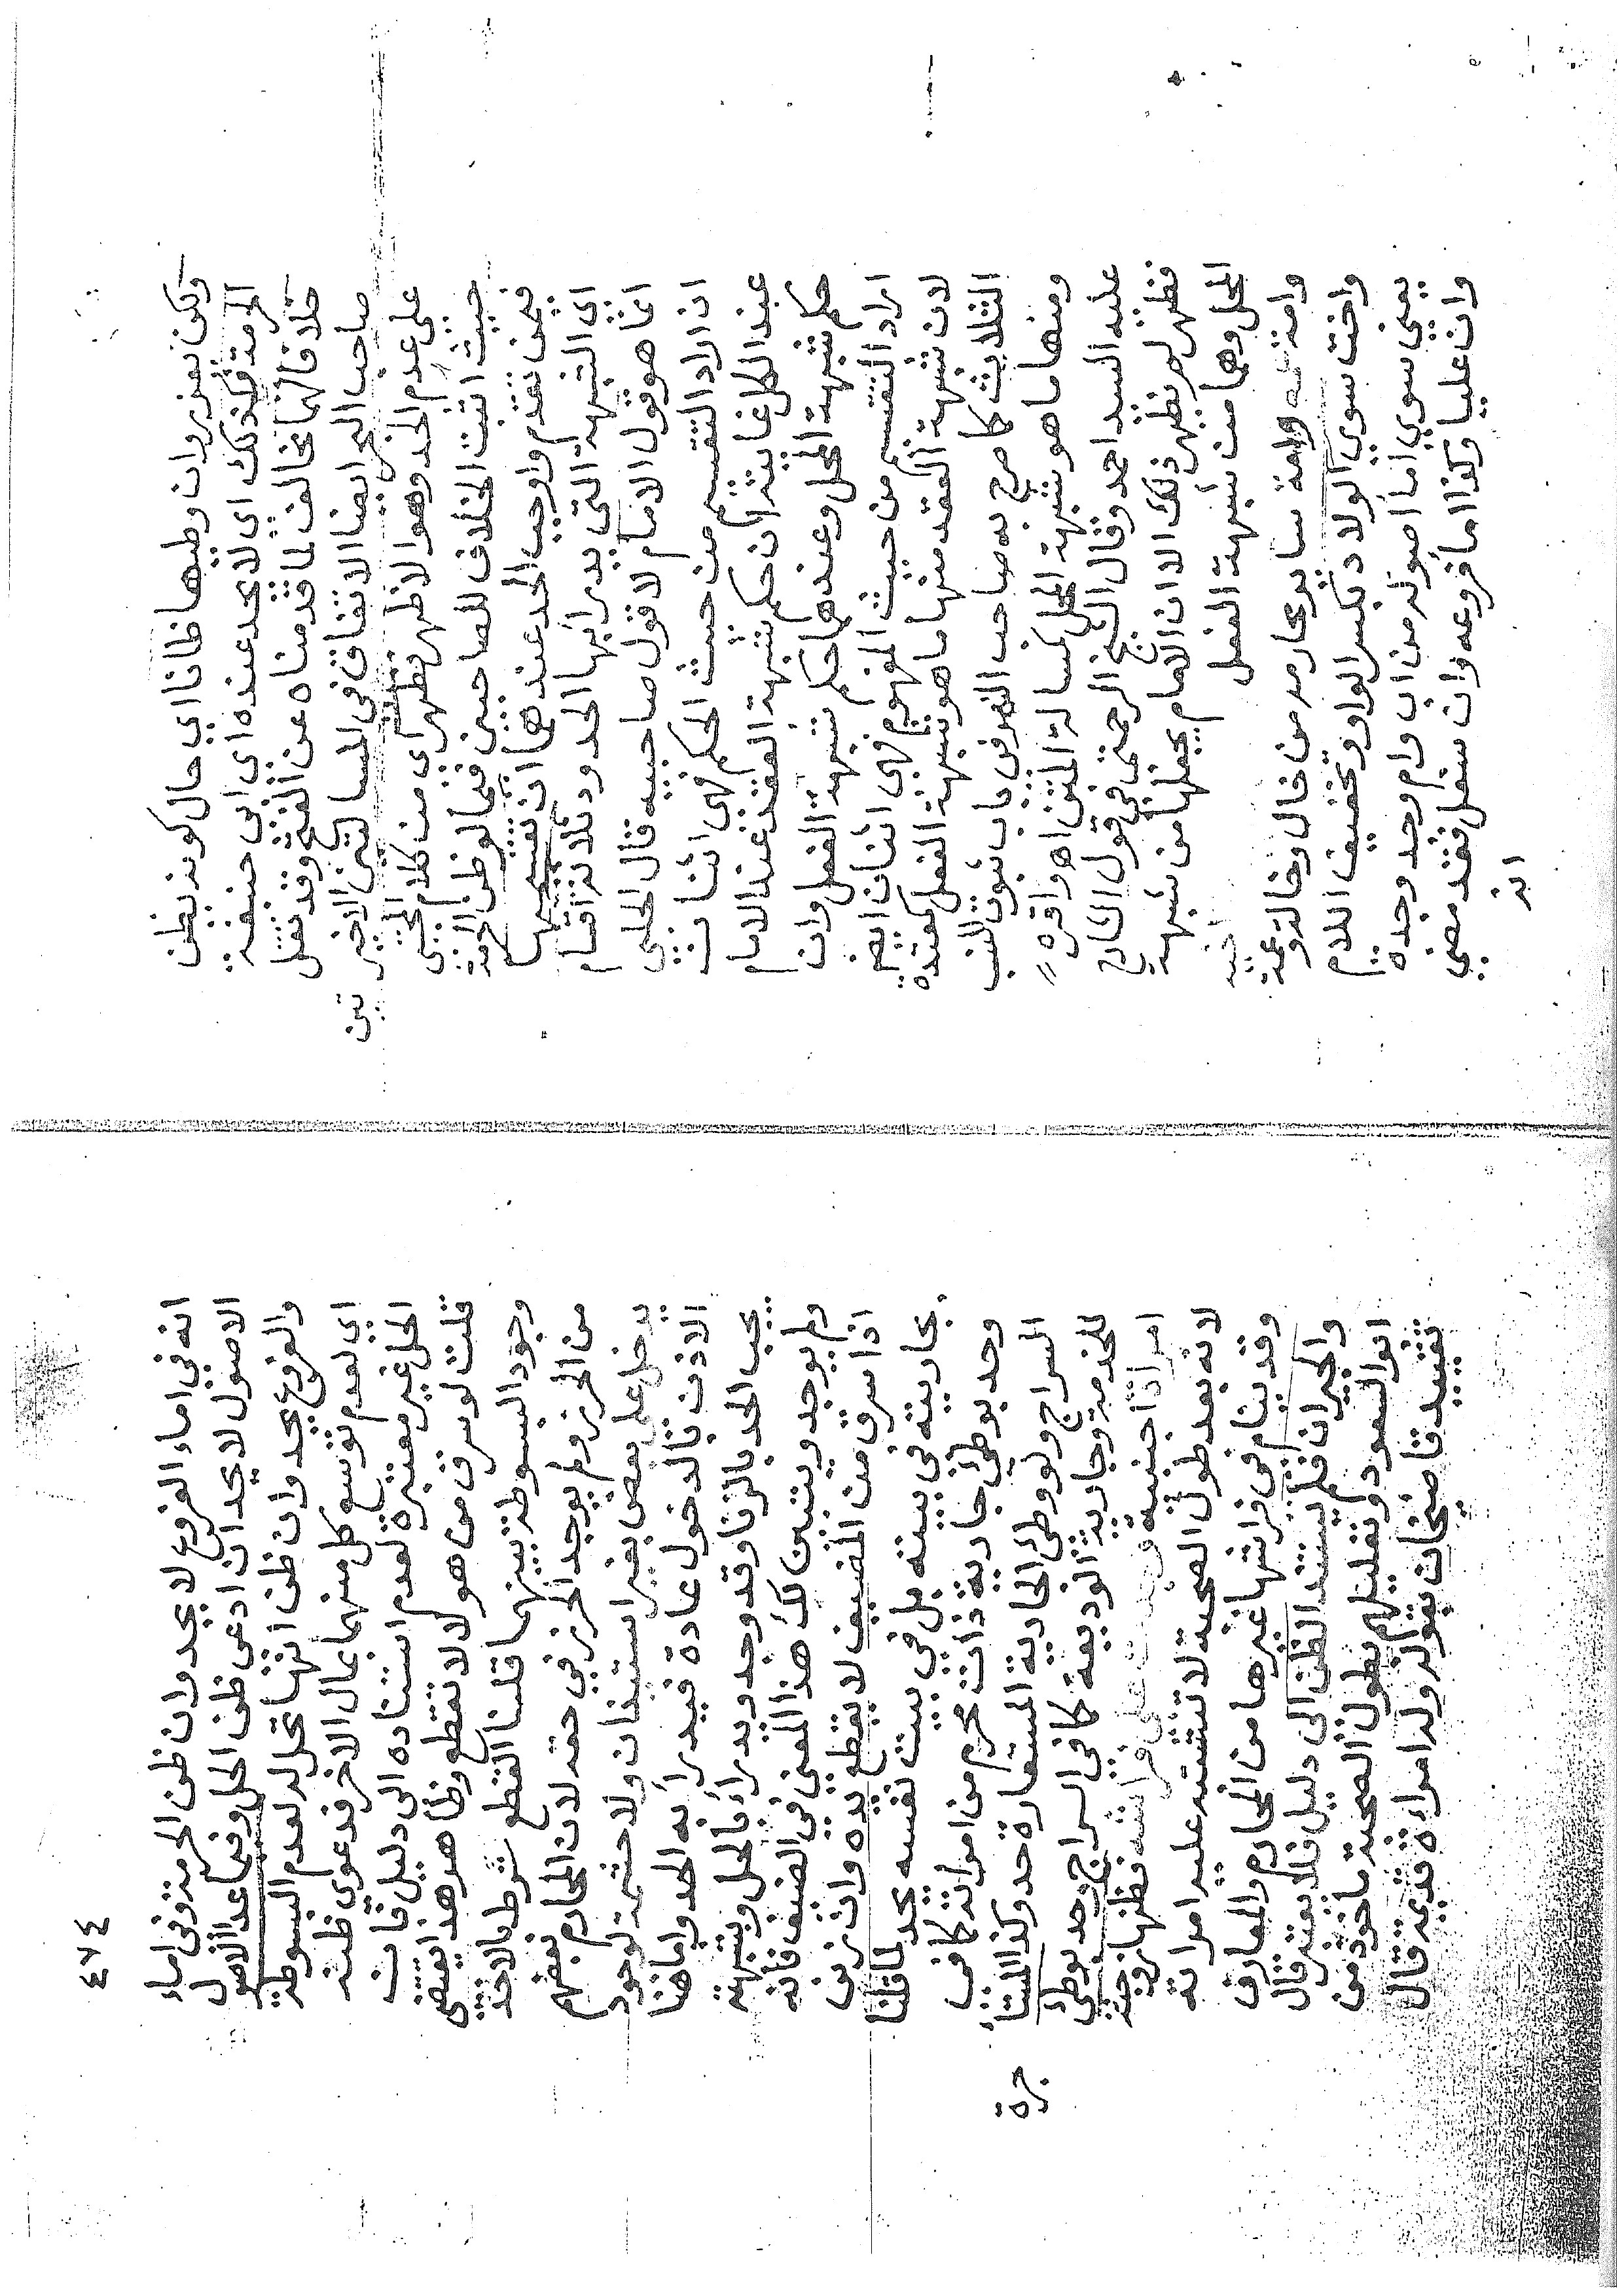 ولكن يعزر وان وطيها ظانا اي حال كونه يظن
الحرمة فكذلك اي لا يحد عنده اي ابي حنيفة
خلافا لهما مخالف لما قدمناه عن الفتح وقد نقل
صاحب البحر ايضا الاتفاق في المسالتين الاخيرتين
على عدم الحد وهو الاظهر تظهر اي من كلام المجتبى
حيث اثبت الخلاف للصاحبين فيما لو ظن الحرمة
فيمن تقدم واوجب الحد عندهما ان تقسيمها
اي الشبهة التي يدرا بها الحد ودثلاثة اقسام
انما هو قول الامام لا قول صاحبيه قال الحلبي
ان اراد التقسيم من حيث الحكم فهي اثنان
عند الكل غايته ان حكم شبهة العقد عند الامام
حكم شبهة المحل وعندهما حكم شبهة الفعل وان
اراد التقسيم من حيث المفهوم فهي اثنان ايضا
لان شبهة العقد منها ما هو شبهة الفعل كمعتدة
الثلاث كما صرح به صاحب النهر في باب ثبوت النسب
ومنها ما هو شبهة المحل كمسالة المتن اهـ واقره
عليه السيد احمد وقال الشيخ الرحمتي في قول الشارح
فظهر لم يظهر ذلك الا ان الامام يجعلها من شبهة
المحل وهما من شبهة الفعل
وامة اخيه وامة ساير محارمه من خال وخالة وعمة
واخت سوي الولاد بكسر الواو وتخفيف اللام
يعني سوي اما اصوله من اب وام وجد وجدة
وان عليا وكذا اما فروعه وان سفل فقد مضي
انه
٤٧٤
انه في اماء الفروع لا يحد وان ظن الحرمة وفي اماء
الاصول لا يحد ان ادعى ظن الحل وفيما عدا الاصول
والفروع يحد وان ظن انها تحل له لعدم البسوطة
اي لعدم توسع كل منهما بمال الاخر فدعوي ظنه
الحل غير معتبرة لعدم استناده الى دليل فان
قلت لو سرق من هولا لا تقطع وظاهر هذا يقتضي
وجود البسوطة بينهما قلنا القطع شرط بالاخذ
من الحرز ولم يوجد الحرز في حقه لان المحارم بعضهم
يدخل على بعض بغير استيذان ولا حشمة لوجود
الاذن بالدخول عادة فيدرا به الحد واما هنا
يجب الحد بالزنا وقد وجد ويدرا بالحل وشبهته
ولم يوجد ويتبين لك هذا المعني في الضيف فانه
اذا سرق من المضيف لا يقطع يده وان زني
بجاريته في بيته بل في بيت نفسه يحد لما قلنا
وحد بوطئ جارية ذات محرم من امراته كما في
السراج ولو وطئ الجارية المستعارة حد وكذا المستاجرة
للخدمة وجارية الوديعة كما في السراج وحد بوطي
امراة اجنبية وجدت على فراشه فظنها زوجته
لانه بعد طول الصحبة لا تشتبه عليه امراته
وقد ينام في فراشها غيرها من المحارم والمعارف
والجيران فلم يستند الظن الى دليل فلا يعتبر قال
ابو السعود وتعليلهم بطول الصحبة ماخوذ من
تقييد قاضيخان بقوله ولد امراة قديمة قال